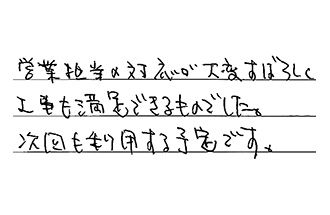 営業担当の対応が大変すばらしく
工事も満足できるものでした。
次回も利用する予定です。